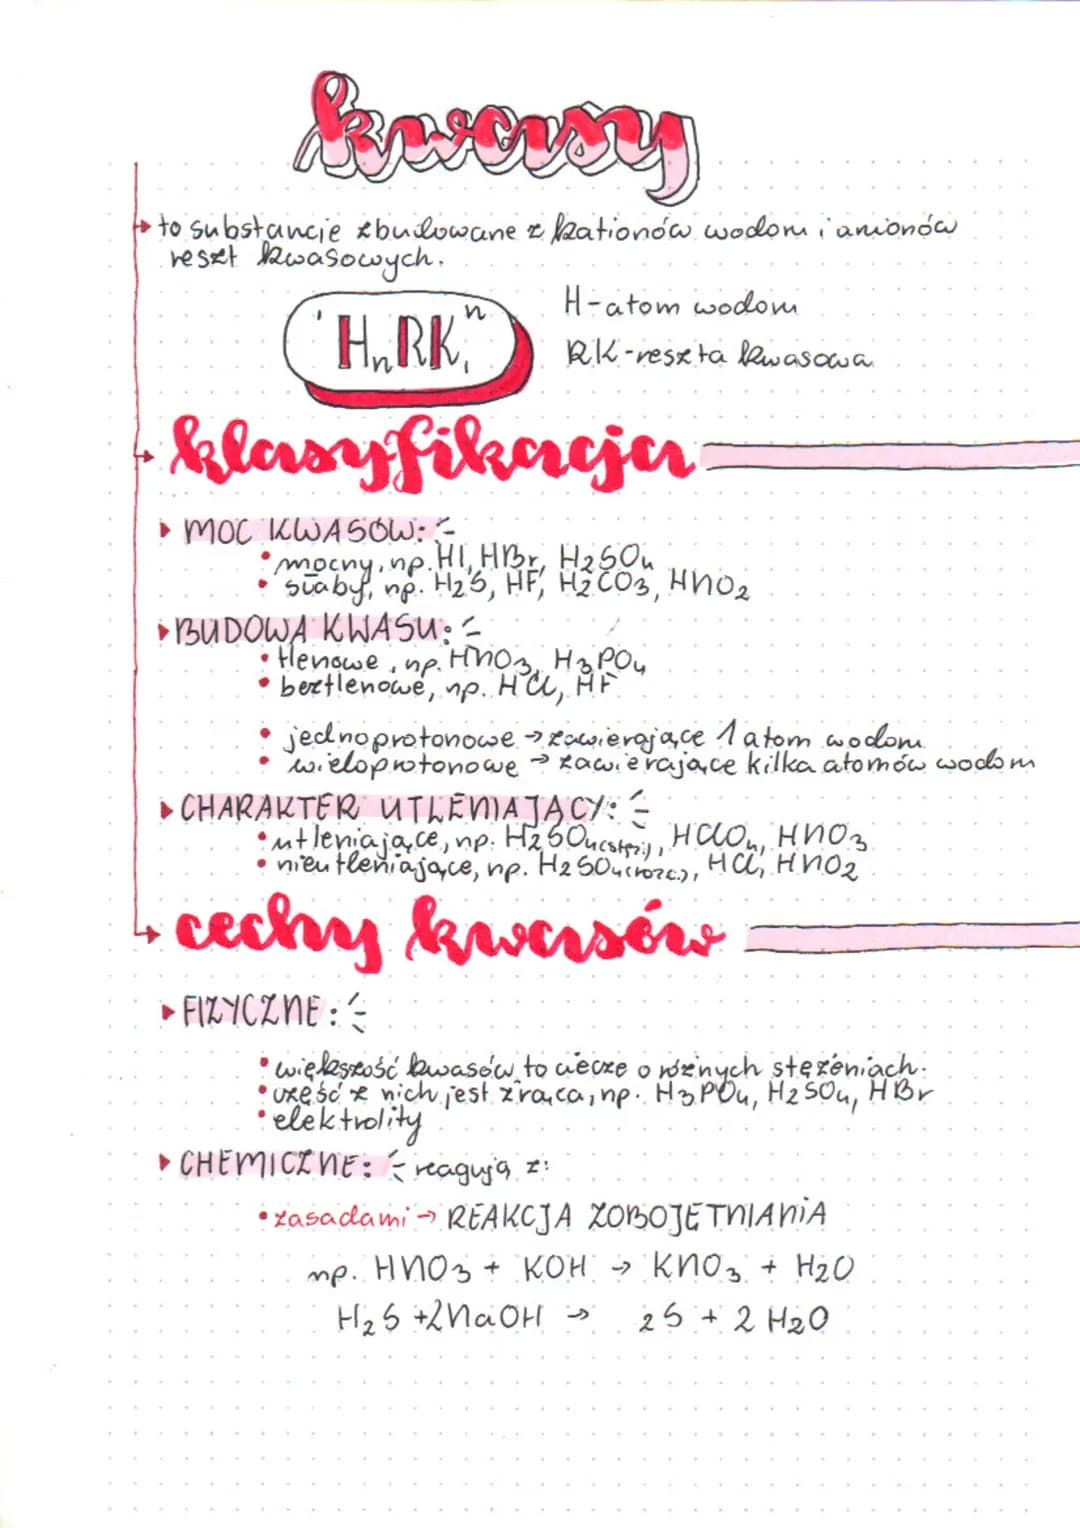 kwasy
to substancje zbudowane z kationów wodoru i anionów
reszt kwasowych.
ᴵHₙRK₁ⁿ
H-atom wodoru
RK-reszta kwasowa
klasyfikacja
MOC KWASÓW:
mocny, np. HI, HBr, H₂SO₄
słaby, np. H₂S, HF, H₂CO₃, HNO₂
BUDOWA KWASU:
tlenowe, np. HNO₃, H₃PO₄
beztlenowe, np. HCl, HF
jednoprotonowe → zawierające 1 atom wodoru
wieloprotonowe → zawierające kilka atomów wodoru
CHARAKTER UTLENIAJĄCY:
utleniające, np. H₂SO₄(stęż.), HClO₄, HNO₃
nieutleniające, np. H₂SO₄(rozc.), HCl, HNO₂
cechy kwasów
FIZYCZNE:
większość kwasów to ciecze o różnych stężeniach.
część z nich jest żrąca, np. H₃PO₄, H₂SO₄, HBr
elektrolity
CHEMICZNE: reagują z:
zasadami → REAKCJA ZOBOJĘTNIANIA
np. HNO₃ + KOH → KNO₃ + H₂O
H₂S + 2NaOH → ₂S + 2 H₂O